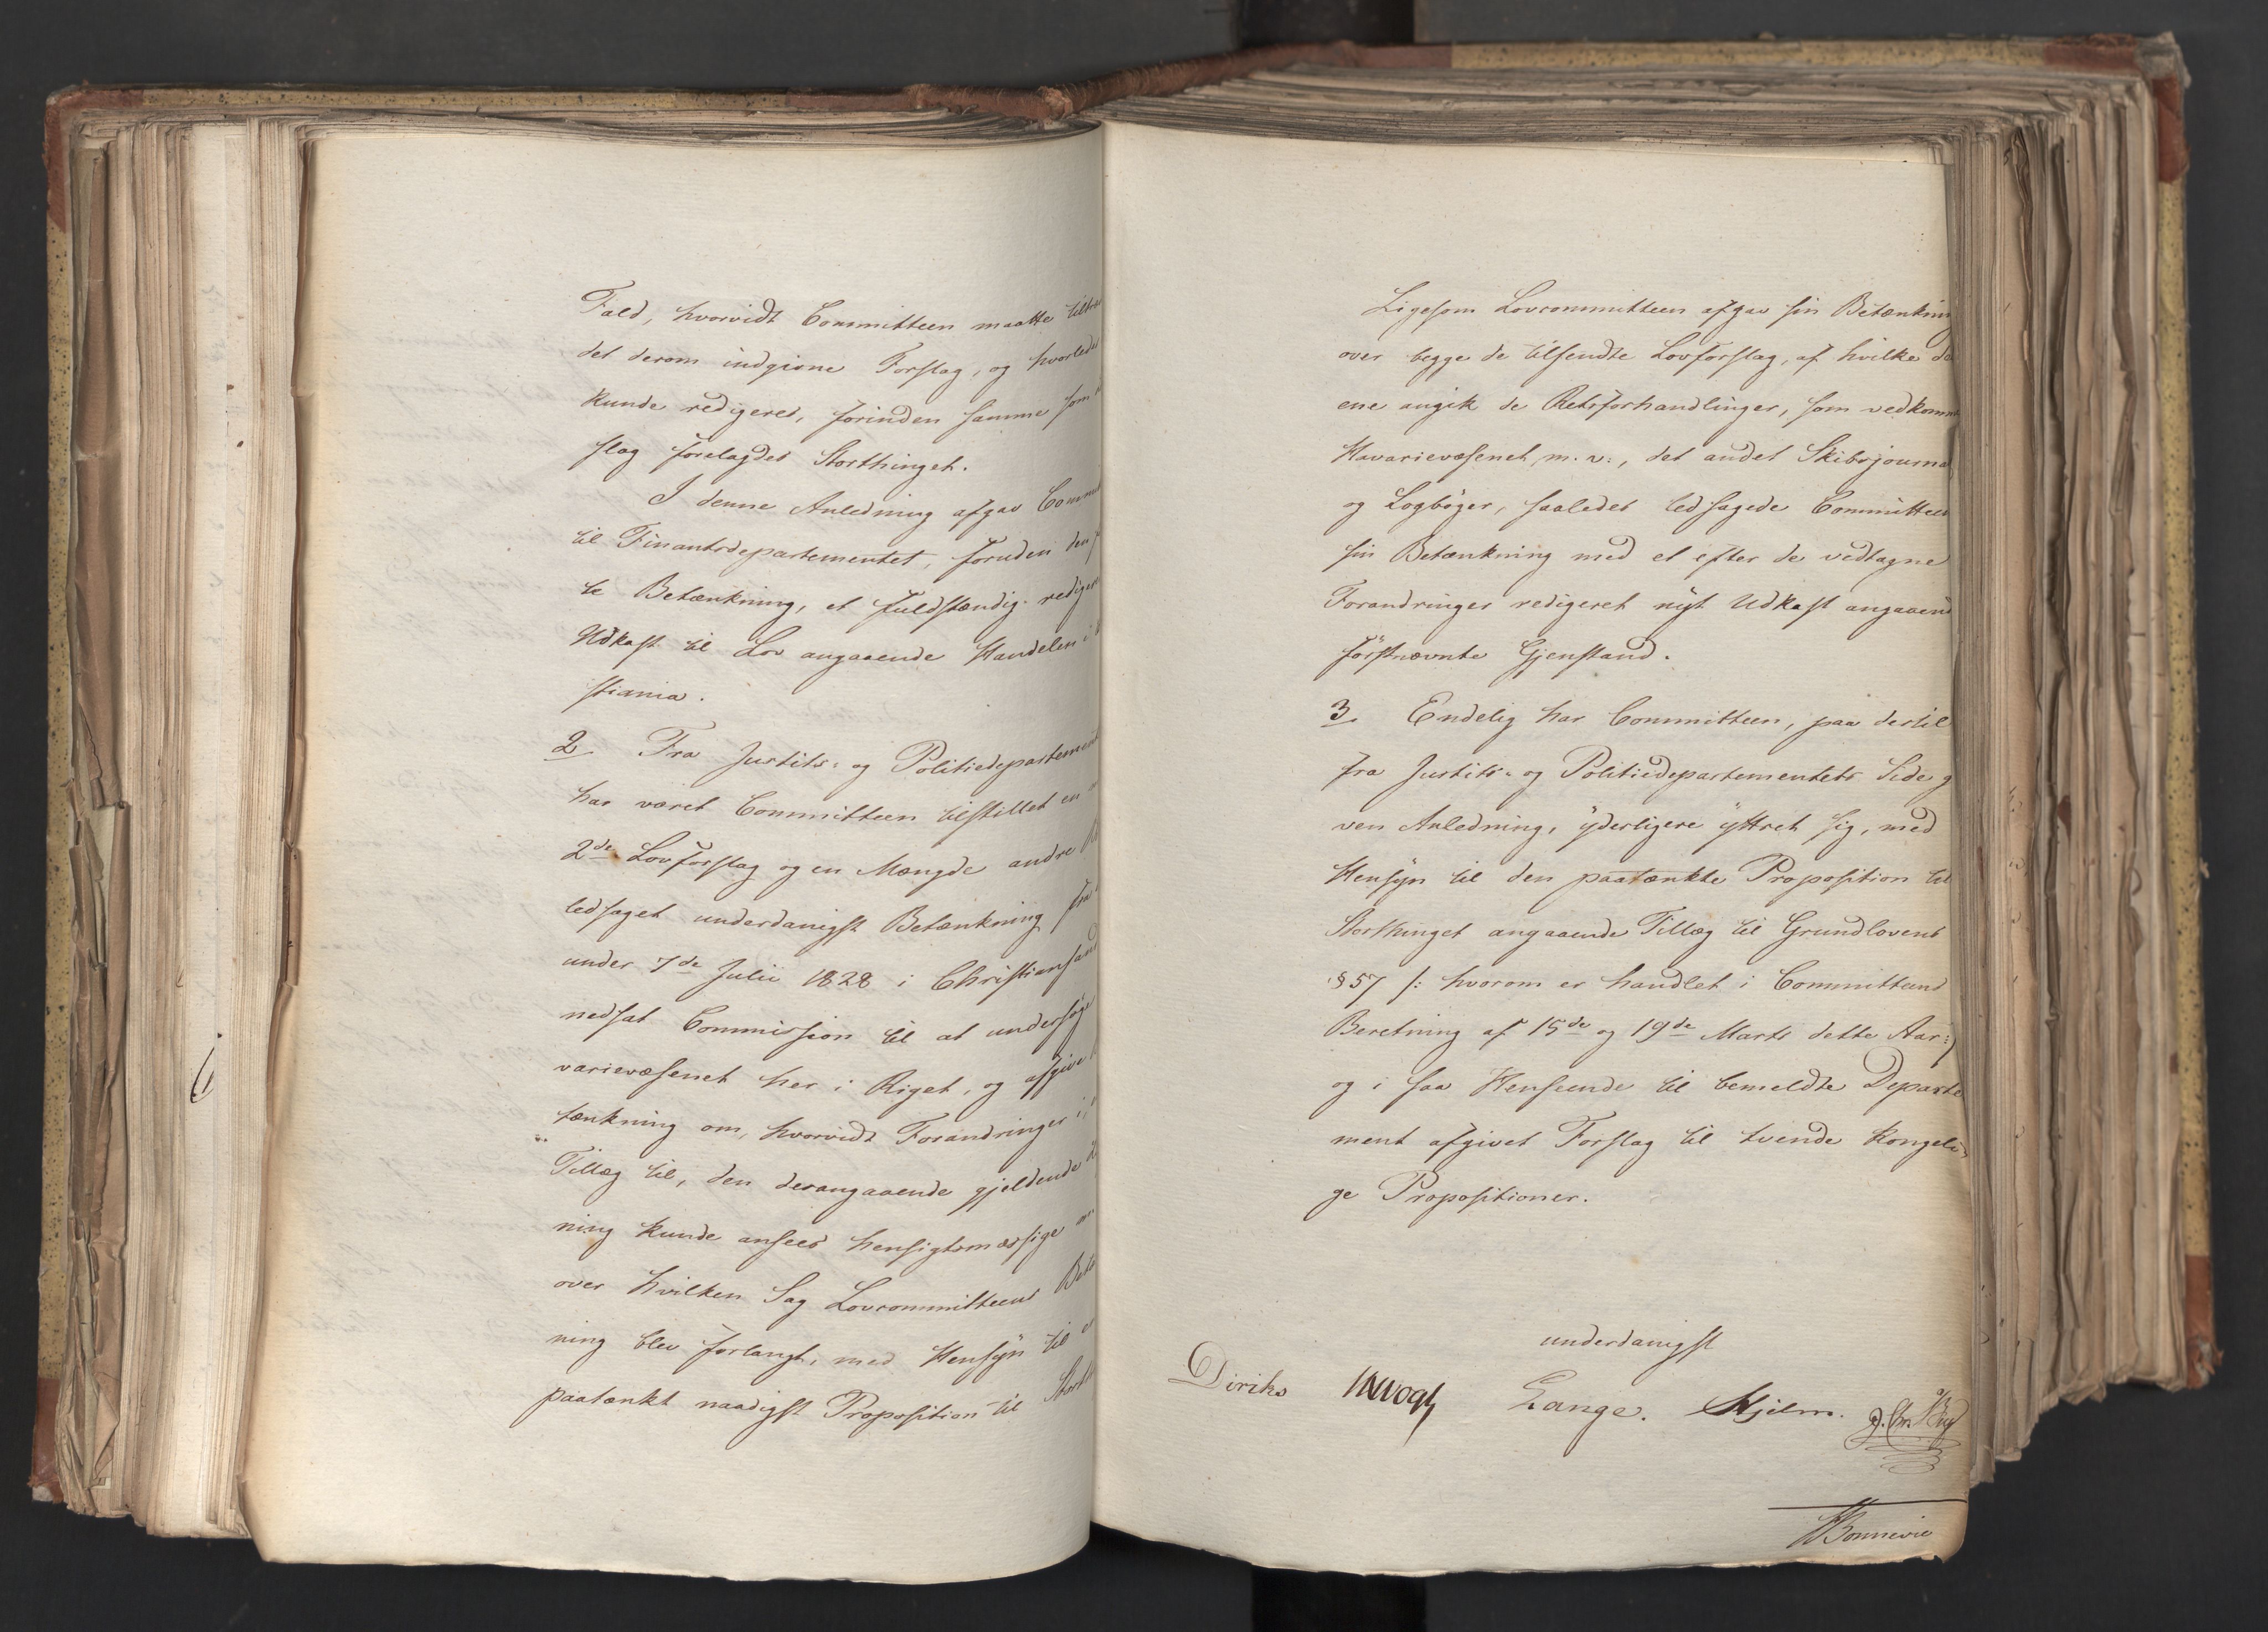 Fald, hvorvidt Committeen maatte
det derom indgivne Forslag, og hvorledes
kunde redigeres, forinden samme som
slag forelagdes Storthinget.
I denne Anledning afgav
til Finantsdepartementet, foruden den
te Betænkning, et fuldstændig
Udkast til Lov angaaende Handelen i
stiania.
2 Fra Justits- og
har været Committeen tilstillet en
2de Lovforslag og en Mængde andre
ledsaget underdanigst Betænkning fra
under 7de Julii 1828 i Christiansand
nedsat Commission til at undersøge
varievæsenet her i Riget, og afgive
tænkning om, hvorvidt Forandringer i,
Tillæg til, den derangaaende gjeldende
ning kunde ansees hensigtsmæssige
over hvilken Sag Lovcommitteens
ning blev forlangt, med Hensyn til
paatænkt naadigst Proposition til
Ligesom Lovcommitteen afgav sin Betænkning
over begge de tilsendte Lovforslag, af hvilke
ene angik de Retsforhandlinger, som
Havarievæsenet m. v., det andet
og Logbøger, saaledes ledsagede Committeen
sin Betænkning med et efter de vedtagne
Forandringer redigeret nyt Udkast
førstnævnte Gjenstand.
3. Endelig har Committeen, paa dertil
fra Justits- og Politiedepartementets Side
ven Anledning, yderligere yttret sig, med
Hensyn til den paatænkte Proposition til
Storthinget angaaende Tillæg til Grundlovens
§ 57 /: hvorom er handlet i Committeens
Beretning af 15de og 19de Marts dette Aar :/
og i saa Henseende til bemeldte Departe
ment afgivet Forslag til tvende Kongeli-
ge Propositioner.
underdanigst
Diriks Vogt Lange. Hjelm.
Bonnevie